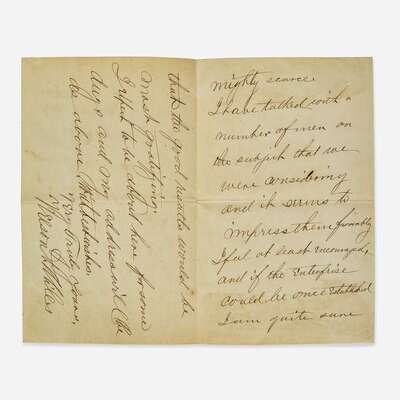 mighty scarce.
I have talked with a
number of men on
the subject that we
were considering
and it seems to
impress them favorably
I feel at least encouraged,
and if the enterprise
could be once established
I am quite sure
that the good results would be
most gratifying.
I expect to be about here for some
days and my address will be
as above
Very Truly Yours,